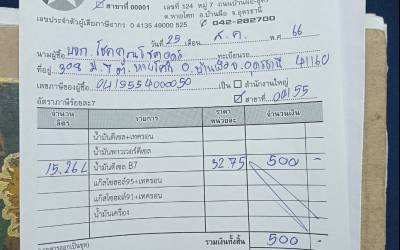 สาขาที่ 00001 เลขที่ 124 หมู่ 7
ต.หายโศก อ.บ้านผือ จ.อุดรธานี
เลขประจำตัวผู้เสียภาษีอากร 0 4135 49000 525 042-282700
วันที่ 25 เดือน ส.ค. พ.ศ. 66
นามผู้ซื้อ หจก. โชค
ที่อยู่ 308 ม.7 ต. หายโศก อ. บ้านผือ จ. อุดรธานี 41160
เลขภาษีของผู้ซื้อ 0415554000050 เป็น สำนักงานใหญ่
อัตราภาษีร้อยละ 7 สาขาที่
จำนวน ลิตร รายการ ราคา หน่วยละ จำนวนเงิน
น้ำมันดีเซล+เทครอน
น้ำมันพาวเวอร์ดีเซล
15.26 L น้ำมันดีเซล B7 32.75 500 -
แก๊สโซฮอล์95+เทครอน
แก๊สโซฮอล์91+เทครอน
น้ำมันเครื่อง
รวมเงินทั้งสิ้น 500